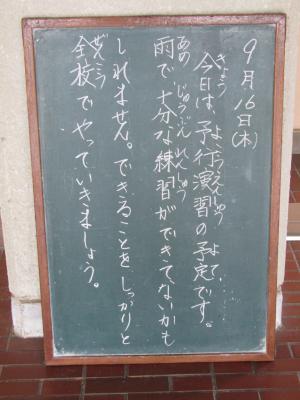 9月16日(木)
今日は、予行演習の予定です。
雨で十分な練習ができてないかも
しれません。できることをしっかりと
全校でやっていきましょう。
きょう
よこうえんしゅう
よてい
あめ
じゅうぶん
れんしゅう
ぜんこう